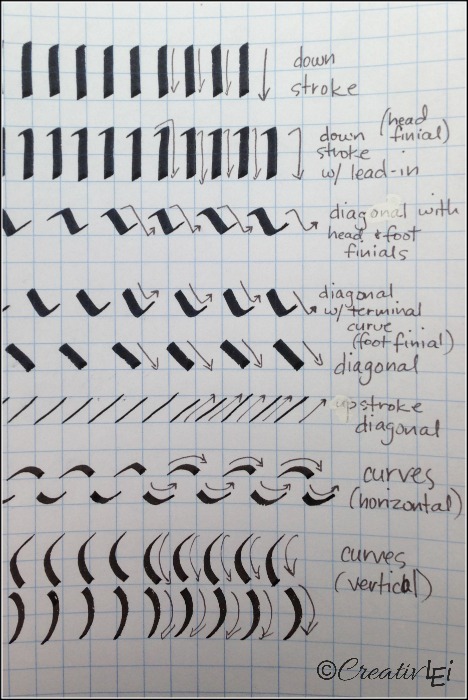 down
stroke
down (head
stroke finial)
w/ lead-in
diagonal with
head & foot
finials
diagonal
w/terminal
curve
(foot finial)
diagonal
upstroke
diagonal
curves
(horizontal)
curves
(vertical)
©CreativLEi